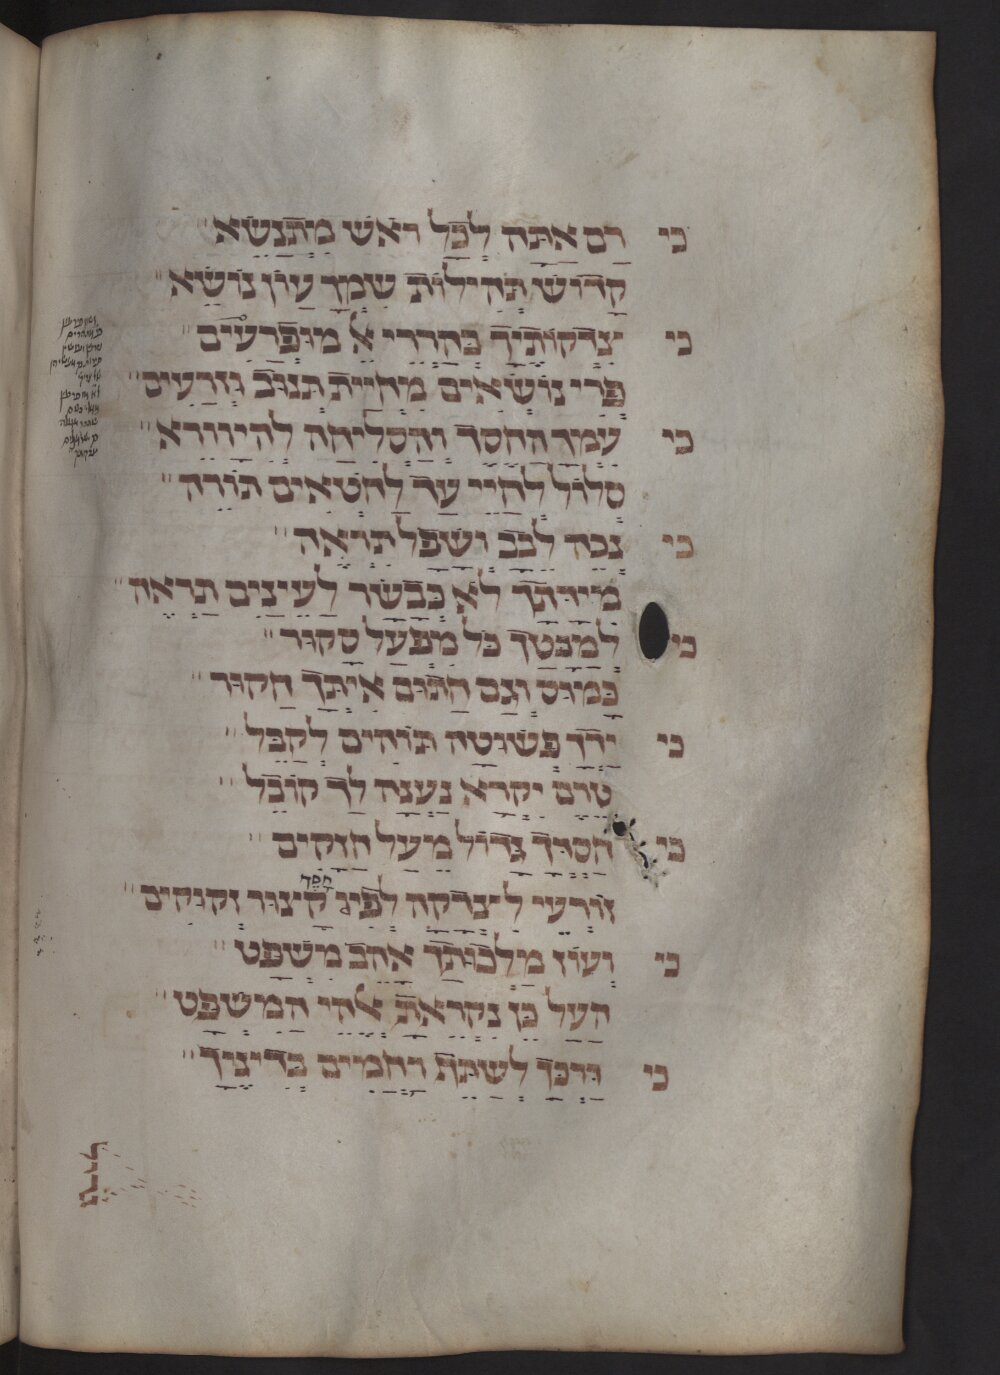 כי רם אתה לכל ראש מתנשא
קדוש תהילות שמך עון נושא
כי צדקותיך בהררי אל מופרעים
פרי נושאים מחיית תנוב גזרעים
כי עמך החסד והסליחה להיוורא
סלול לחיי עד לחטאים תורה
כי נכה לבב ושפל תראה
מידתך לא כבשר לעינים תראה
כי למבטך כל מפעל סקור
כמוס וגם חתום איתך חקור
כי ידך פשוטה תוהים לקבל
טרם יקרא נענה לך קובל
כי חסדך גדול מעל חוקים
זורעי לצדקה לפי חסד קיצור וקוקים
כי ועוז מלכותך אהב משפט
העל כן נקראת אלהי המשפט
כי דרכך לשתף רחמים בדינך